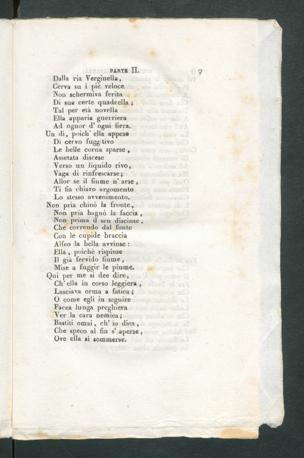 PARTE II. 9
Dalla ria Verginella,
Cerva su i piè veloce
Non schermiva ferita
Di sue certe quadrella;
Tal per età novella
Ella apparia guerriera
Ad ognor d' ogni fiera.
Un dì, poich' ella appese
Di cervo fuggitivo
Le belle corna sparse,
Assetata discese
Verso un liquido rivo,
Vaga di rinfrescarse;
Allor se il fiume n' arse,
Ti fia chiaro argomento
Lo stesso avvenimento.
Non pria chinò la fronte,
Non pria bagnò la faccia,
Non prima il sen discinse,
Che correndo dal fonte
Con le cupide braccia
Alfeo la bella avvinse:
Ella, poichè rispinse
Il già fervido fiume,
Mise a fuggir le piume.
Qui per me si dee dire,
Ch' ella in corso leggiera,
Lasciava orma a fatica;
O come egli in seguire
Facea lunga preghiera
Ver la cara nemica;
Bastiti omai, ch' io dica,
Che speco al fin s' aperse,
Ove ella si sommerse.